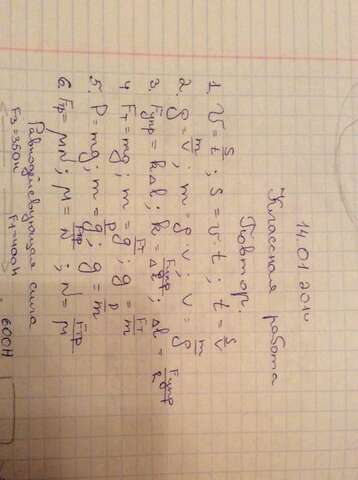 14.01.2010
Классная работа
Повтор.
1. V = S/t ; S = v·t ; t = S/V
2. ρ = m/v ; m = ρ v ; v = m/ρ
3. Fупр = kΔl ; k = Fупр/Δl ; Δl = Fупр/k
4. Fт = mg ; m = Fт/g ; g = Fт/m
5. P = mg ; m = P/g ; g = P/m
6. Fтр = μN ; μ = Fтр/N ; N = Fтр/μ
Равнодействующая сила
F3=350н F1=400н 600Н